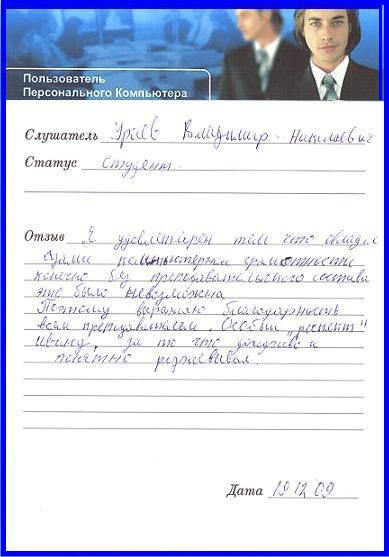 Пользователь
Персонального Компьютера
Слушатель Ураев Владимир Николаевич
Статус студент.
Отзыв Я удовлетворен тем что овладел
азами компьютерной грамотности
конечно без преподавательского состава
это было невозможна
Поэтому выражаю благодарность
всем преподавателем. Особый "респект"
за то что доходчиво и
понятно разжевывал.
Дата 19 12 09